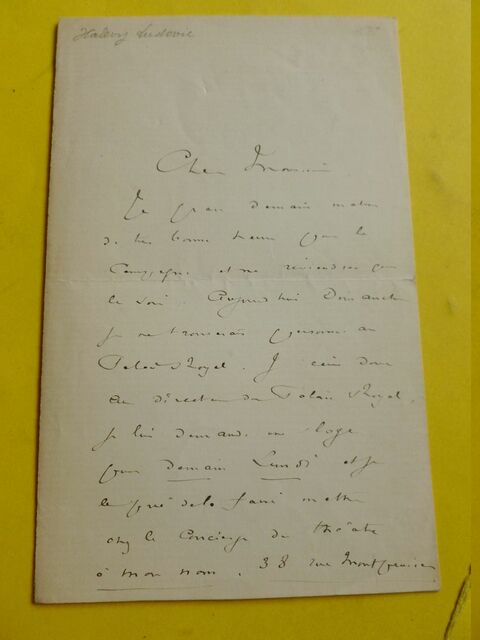 Halévy Ludovic
Cher Monsieur
Je pars demain matin
de très bonne heure pour la
campagne et ne reviendrai que
le soir. Aujourd'hui Dimanche
je ne trouverais personne au
Palais Royal. J'écris donc
au directeur du Palais Royal,
je lui demande une loge
pour demain Lundi et je
le prie de la faire mettre
chez le Concierge du théâtre
à mon nom. 38 rue Montpensier